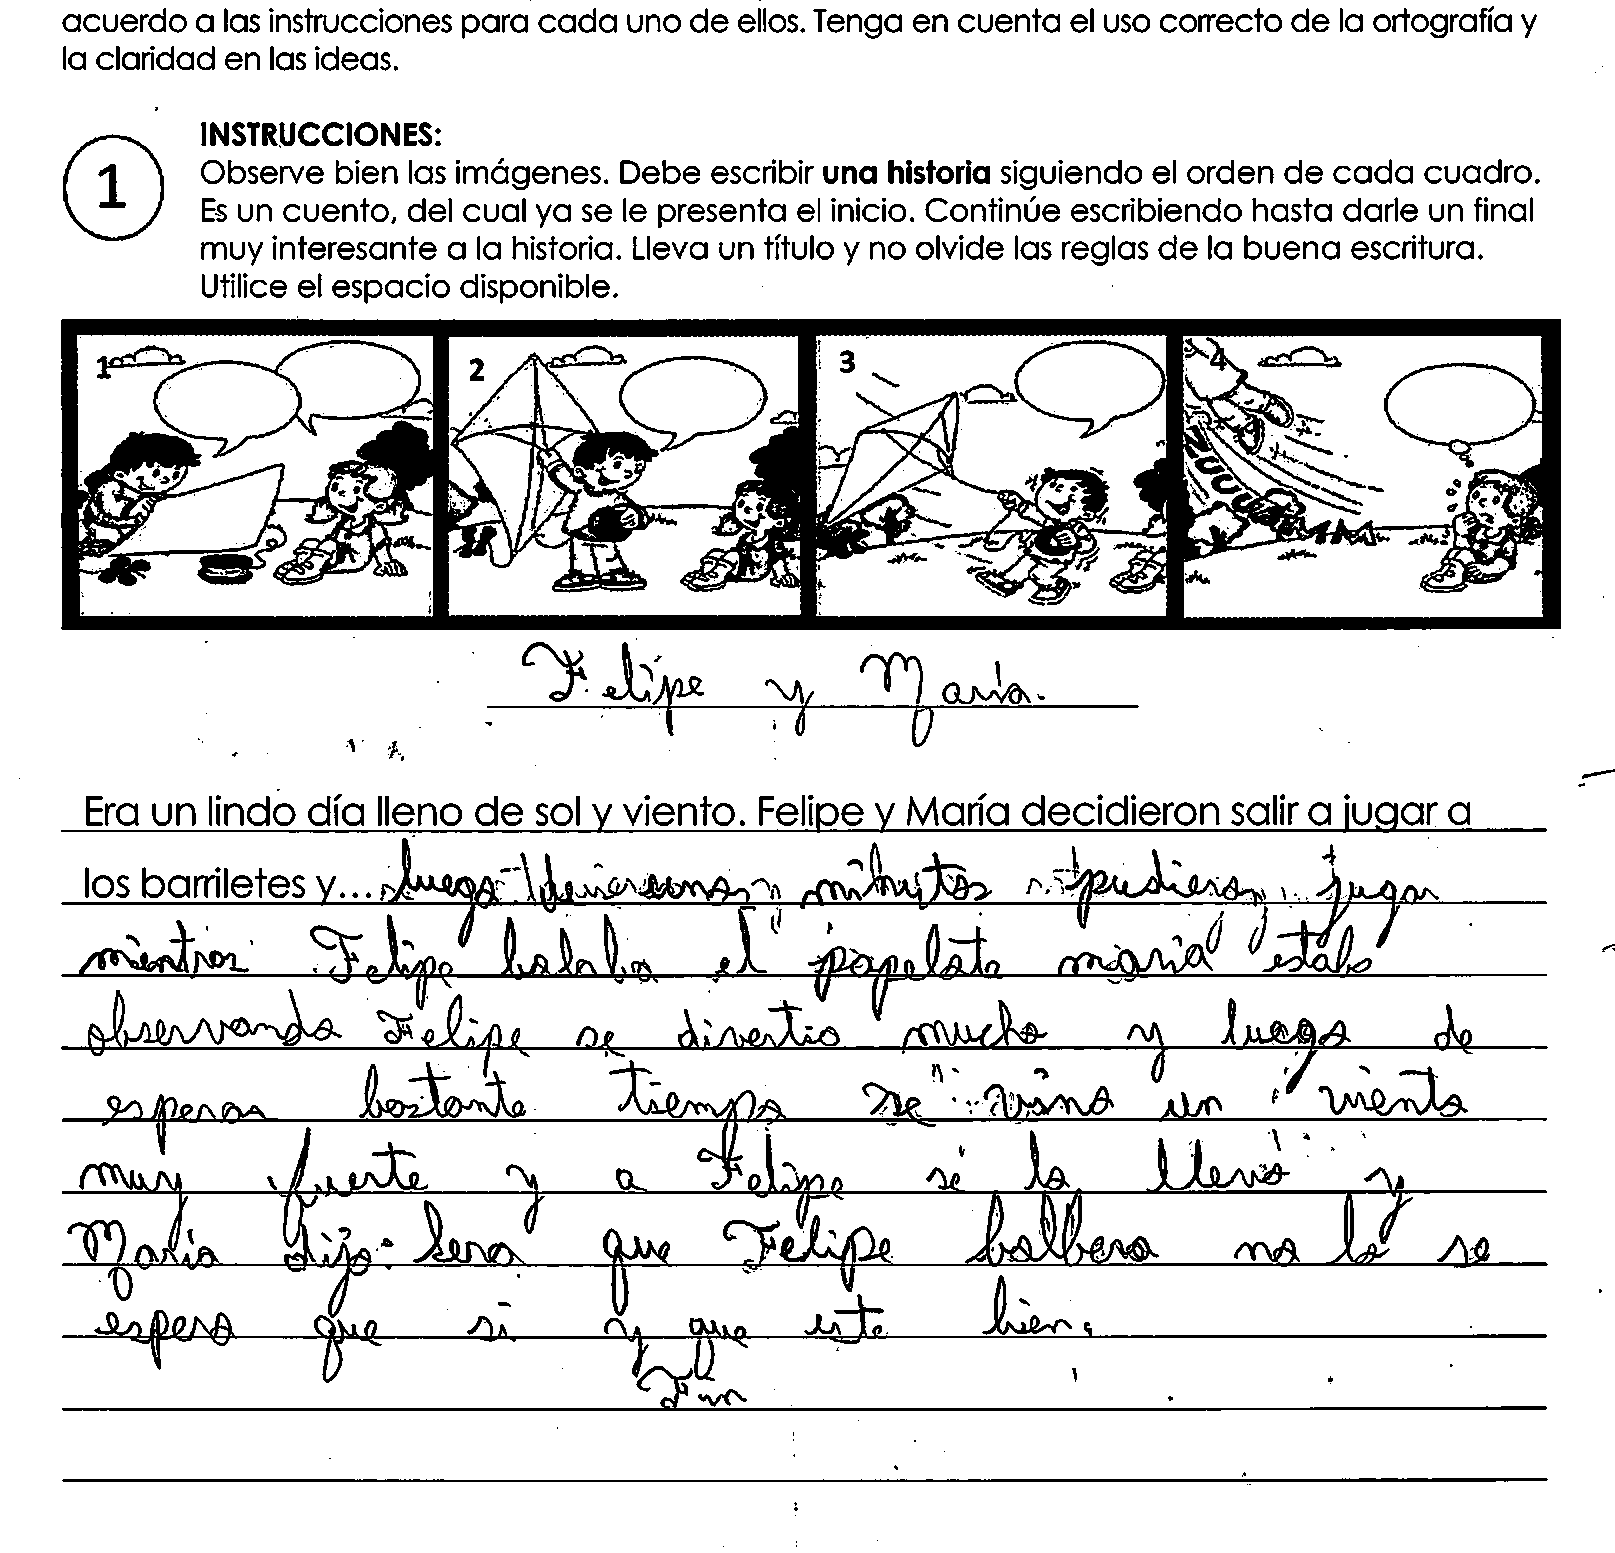 acuerdo a las instrucciones para cada uno de ellos. Tenga en cuenta el uso correcto de la ortografía y
la claridad en las ideas.
1
INSTRUCCIONES:
Observe bien las imágenes. Debe escribir una historia siguiendo el orden de cada cuadro.
Es un cuento, del cual ya se le presenta el inicio. Continúe escribiendo hasta darle un final
muy interesante a la historia. Lleva un título y no olvide las reglas de la buena escritura.
Utilice el espacio disponible.
1 2 3 4
Felipe y María.
Era un lindo día lleno de sol y viento. Felipe y María decidieron salir a jugar a
los barriletes y... luego de unos minutos pudieron jugar
mientras Felipe bolaba el papelote maría estaba
observando Felipe se divertio mucho y luego de
esperar bastante tiempo se vino un viento
muy fuerte y a Felipe se lo llevó y
María dijo: Sera que Felipe bolbera no lo se
espero que si y que este bien.
Fin